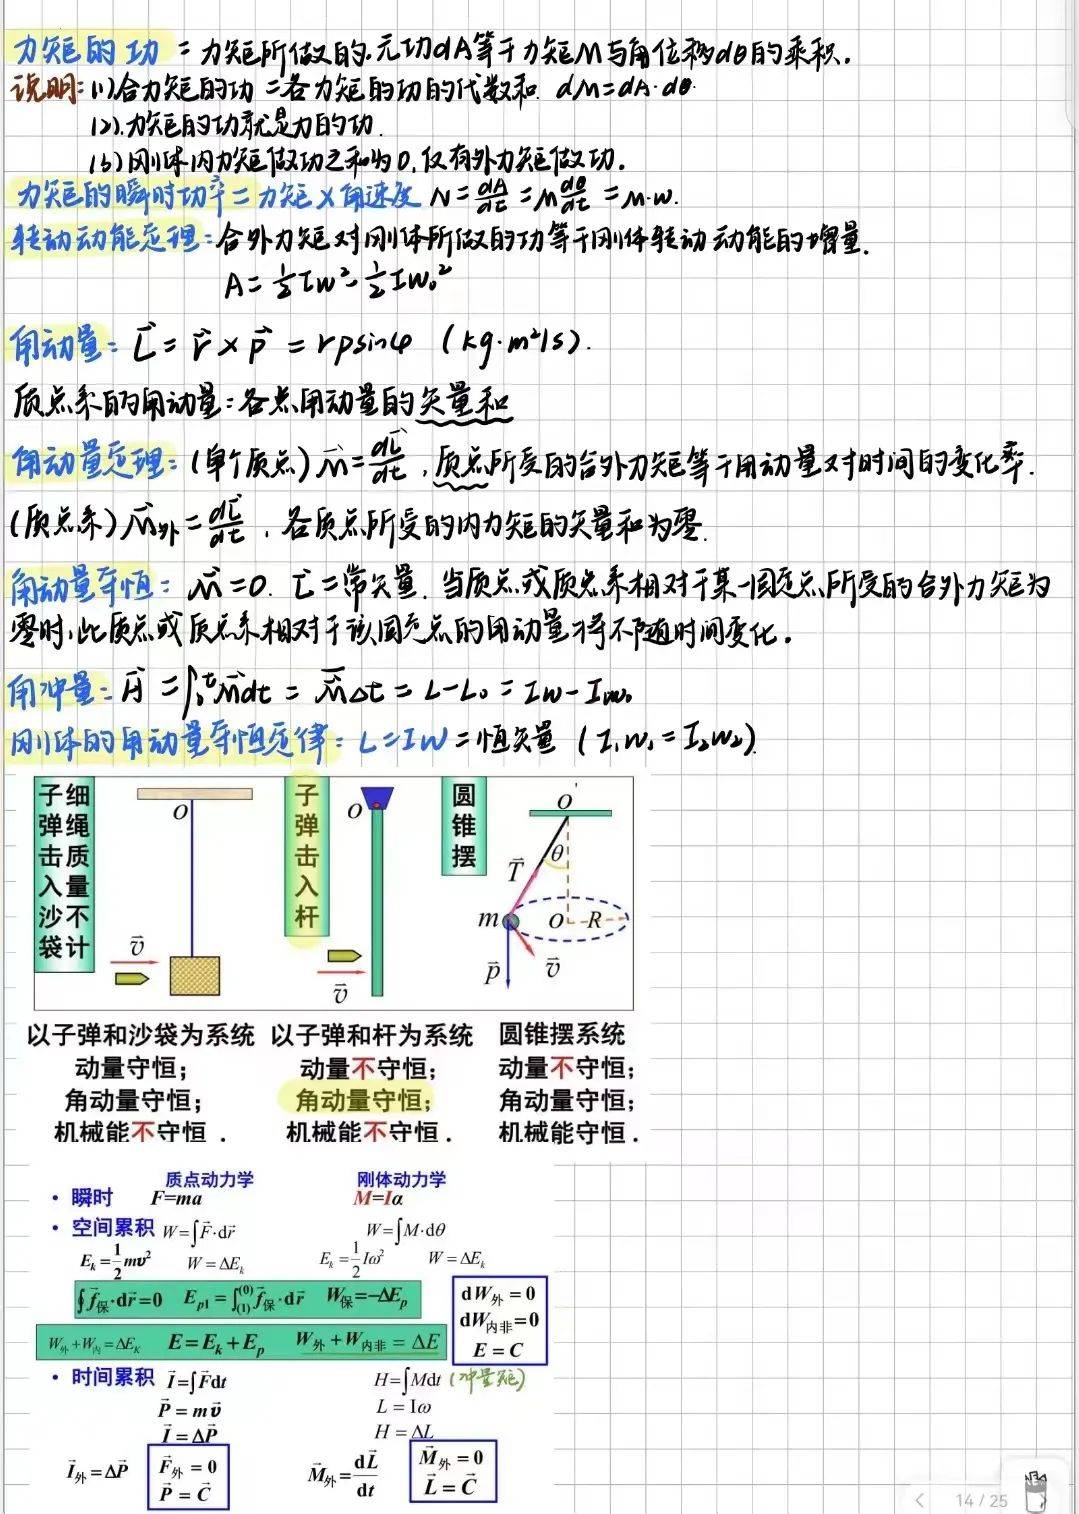 力矩的功 = 力矩所做的元功dA等于力矩M与角位移dθ的乘积.
说明: (1)合力矩的功 = 各力矩的功的代数和. dM=dA·dθ.
(2).力矩的功就是力的功.
(3)刚体内力矩做功之和为0,仅有外力矩做功.
力矩的瞬时功率 = 力矩×角速度 N=dA/dt=M dθ/dt=M·w.
转动动能定理:合外力矩对刚体所做的功等于刚体转动动能的增量.
A=½Iw²-½Iw₀²
角动量: L⃗ = r⃗ × p⃗ = rpsinφ (kg·m²/s).
质点系的角动量:各点角动量的矢量和
角动量定理:(单个质点) M⃗=dL⃗/dt ,质点所受的合外力矩等于角动量对时间的变化率.
(质点系) M⃗外=dL⃗/dt . 各质点所受的内力矩的矢量和为零.
角动量守恒: M⃗=0. L⃗=常矢量. 当质点或质点系相对于某一固定点所受的合外力矩为
零时,此质点或质点系相对于该固定点的角动量将不随时间变化.
角冲量: H⃗ =∫₀ᵗM⃗dt = M⃗Δt = L-L₀ = Iw-Iw₀
刚体的角动量守恒定律: L=Iw=恒矢量 (I₁w₁=I₂w₂).
子弹击入沙袋
细绳质量不计
O
v⃗
子弹击入杆
O
v⃗
圆锥摆
O'
θ
T⃗
m
O
R
p⃗
v⃗
以子弹和沙袋为系统
动量守恒;
角动量守恒;
机械能不守恒.
以子弹和杆为系统
动量不守恒;
角动量守恒;
机械能不守恒.
圆锥摆系统
动量不守恒;
角动量守恒;
机械能守恒.
质点动力学 刚体动力学
• 瞬时 F=ma M=Iα
• 空间累积 W=∫F⃗·dr⃗ W=∫M·dθ
Eₖ=½mv² W=ΔEₖ Eₖ=½Iω² W=ΔEₖ
∮f⃗保·dr⃗=0 Ep1=∫(1)(0)f⃗保·dr⃗ W保=−ΔEp
W外+W内=ΔEK E=Ek+Ep W外+W内非=ΔE
dW外=0
dW内非=0
E=C
• 时间累积 I⃗=∫F⃗dt H=∫Mdt (冲量矩)
P⃗=mv⃗ L=Iω
I⃗=ΔP⃗ H=ΔL
I⃗外=ΔP⃗ F⃗外=0 M⃗外=dL⃗/dt M⃗外=0
P⃗=C⃗ L⃗=C⃗
14 / 25